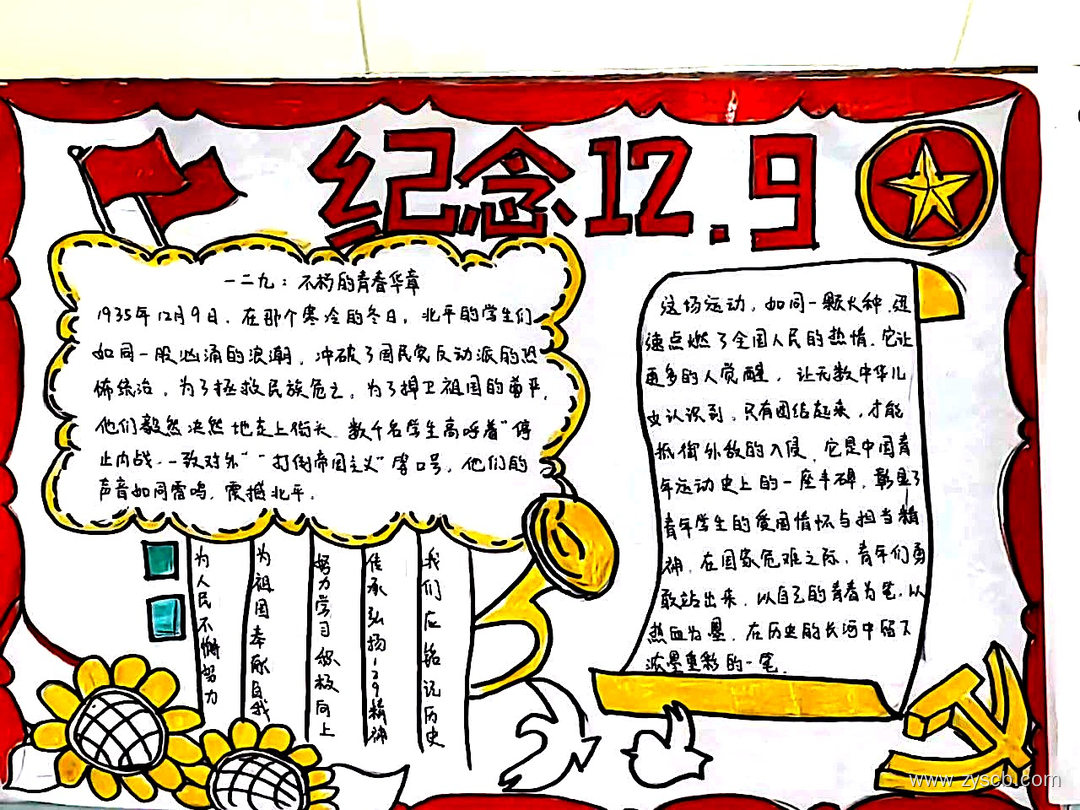 纪念12.9
一二九:不朽的青春华章
1935年12月9日,在那个寒冷的冬日,北平的学生们
如同一股汹涌的浪潮,冲破了国民党反动派的恐
怖统治,为了拯救民族危亡,为了捍卫祖国的尊严,
他们毅然决然地走上街头,数千名学生高呼着"停
止内战,一致对外""打倒帝国主义"等口号,他们的
声音如同雷鸣,震撼北平。
这场运动,如同一颗火种,迅
速点燃了全国人民的热情,它让
更多的人觉醒,让无数中华儿
女认识到,只有团结起来,才能
抵御外敌的入侵,它是中国青
年运动史上的一座丰碑,彰显了
青年学生的爱国情怀与担当精
神,在国家危难之际,青年们勇
敢站出来,以自己的青春为笔,以
热血为墨,在历史的长河中留下
浓墨重彩的一笔.
我们应铭记历史
传承弘扬129精神
努力学习积极向上
为祖国奉献自我
为人民不懈努力
www.zyscb.com